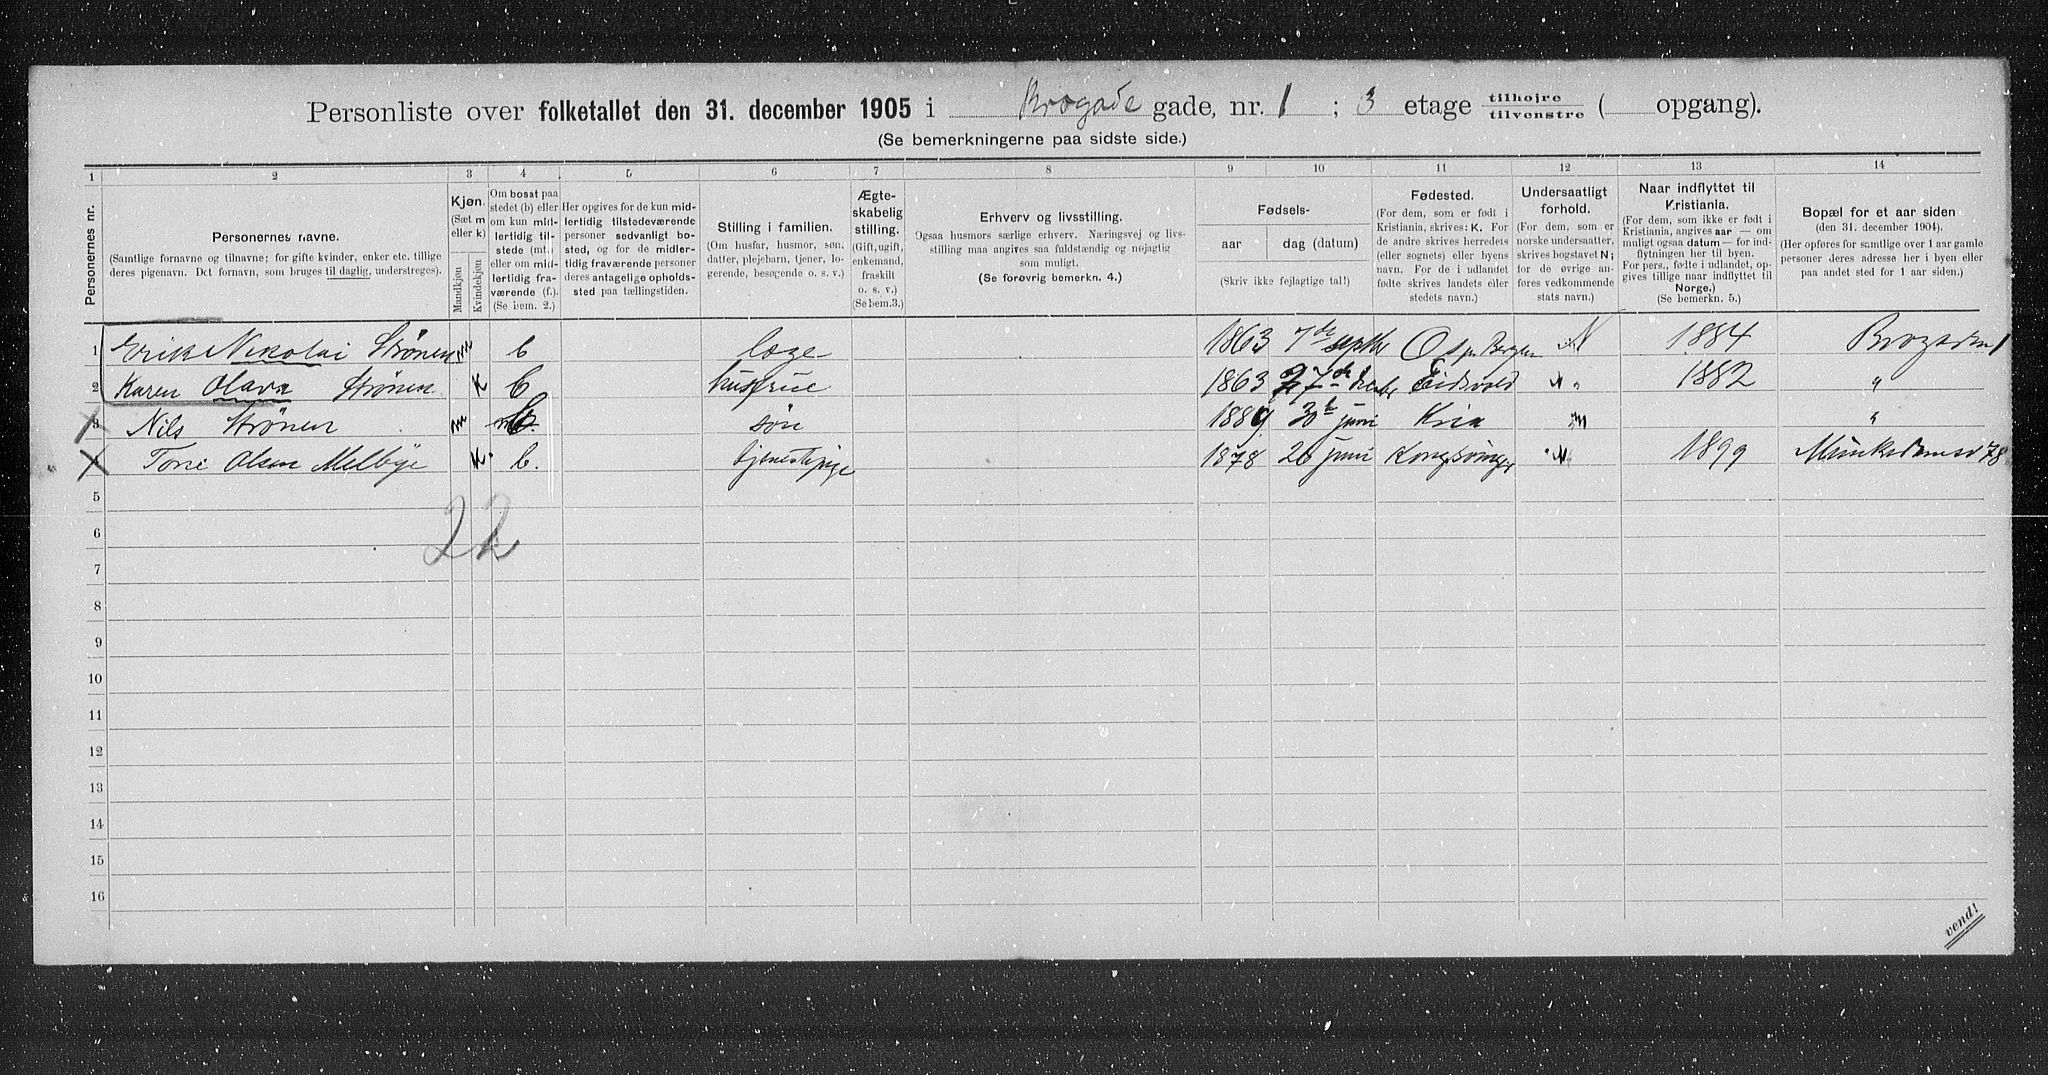 Personliste over folketallet den 31. december 1905 i Brogade gade, nr. 1 ; 3 etage tilhøjre tilvenstre ( opgang).
(Se bemerkningerne paa sidste side.)
1 2 3 4 5 6 7 8 9 10 11 12 13 14
Personernes nr.
Personernes navne.
(Samtlige fornavne og tilnavne; for gifte kvinder, enker etc. tillige
deres pigenavn. Det fornavn, som bruges til daglig, understreges).
Kjøn.
(Sæt m
eller k)
Mandkjøn
Kvindekjøn
Om bosat paa
stedet (b) eller
om kun mid-
lertidig til-
stede (mt)
eller om mid-
lertidig fra-
værende (f.).
(Se bem. 2.)
Her opgives for de kun mid-
lertidig tilstedeværende
personer sedvanlig bo-
sted, og for de midler-
tidig fraværende personer
deres antagelige opholds-
sted paa tællingstiden.
Stilling i familien.
(Om husfar, husmor, søn,
datter, plejebarn, tjener, lo-
gerende, besøgende o. s. v.)
Ægte-
skabelig
stilling.
(Gift, ugift,
enkemand,
fraskilt
o. s. v.)
(Se bem.3.)
Erhverv og livsstilling.
Ogsaa husmors særlige erhverv. Næringsvej og livs-
stilling maa angives saa fuldstændig og nøjagtig
som muligt.
(Se forøvrig bemerkn. 4.)
Fødsels-
aar dag (datum)
(Skriv ikke fejlagtige tal!)
Fødested.
(For dem, som er født i
Kristiania, skrives: K. For
de andre skrives herredets
(eller sognets) eller byens
navn. For de i udlandet
fødte skrives landets eller
stedets navn.)
Undersaatligt
forhold.
(For dem, som er
norske undersaatter,
skrives bogstavet N;
for de øvrige an-
føres vedkommende
stats navn.)
Naar indflyttet til
Kristiania.
(For dem, som ikke er født i
Kristiania, angives aar — om
muligt ogsaa datum — for ind-
flytningen her til byen.
For pers., fødte i udlandet, op-
gives tillige naar indflyttet til
Norge.)
(Se bemerkn. 5.)
Bopæl for et aar siden
(den 31. december 1904).
(Her opføres for samtlige over 1 aar gamle
personer deres adresse her i byen eller
paa andet sted for 1 aar siden.)
1 Erik Nikolai Strönen m b loge 1863 7de septbr Os pr Bergen N 1884 Brogaden 1
2 Karen Olava Strönen K b hustrue 1863 27de decbr Eidsvold N " 1882 "
3 Nils Strönen m b søn 1889 30te juni Kria "
4 Tone Olsen Melbye K. b. tjenestpige 1878 26 juni Kongsvinger N 1899 Munkedamsv 78
5
22
6
7
8
9
10
11
12
13
14
15
16
vend!